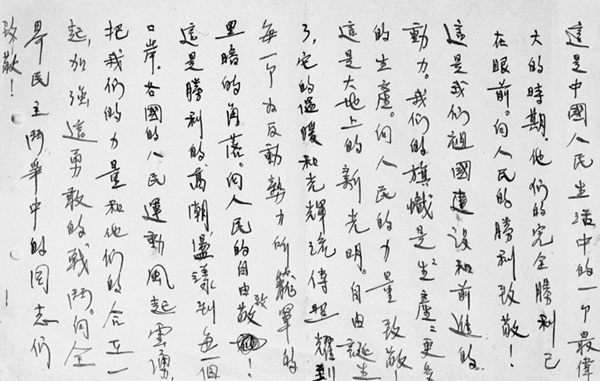 這是中國人民生活中的一个最偉
大的時期。他们的完全勝利已
在眼前。向人民的勝利致敬！
這是我们祖國建设和前進的
動力。我们的旗幟是“生產”“更多
的生產。向人民的力量致敬
這是大地上的新光明。自由誕生
了，它的溫暖和光輝流傳照耀到
每一个为反動勢力所籠罩的
黑暗的角落。向人民的自由致敬！
這是勝利的高潮，盪漾到每一個
口岸，各國的人民運動風起雲湧，
把我们的力量和他们的合在一
起，加強這勇敢的戰鬥。向全
界民主鬥爭中的同志们！
致敬！